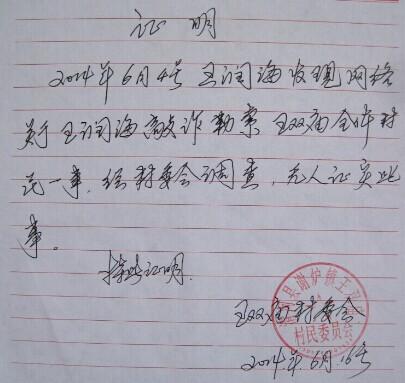 证明
2014年6月4号王润海发现网络
关于王润海敲诈勒索王双庙全体村
民一事,经村委会调查,无人证实此
事。
特此证明.
王双庙村委会
县谢炉镇王双
村民委员会
2014年6月16号